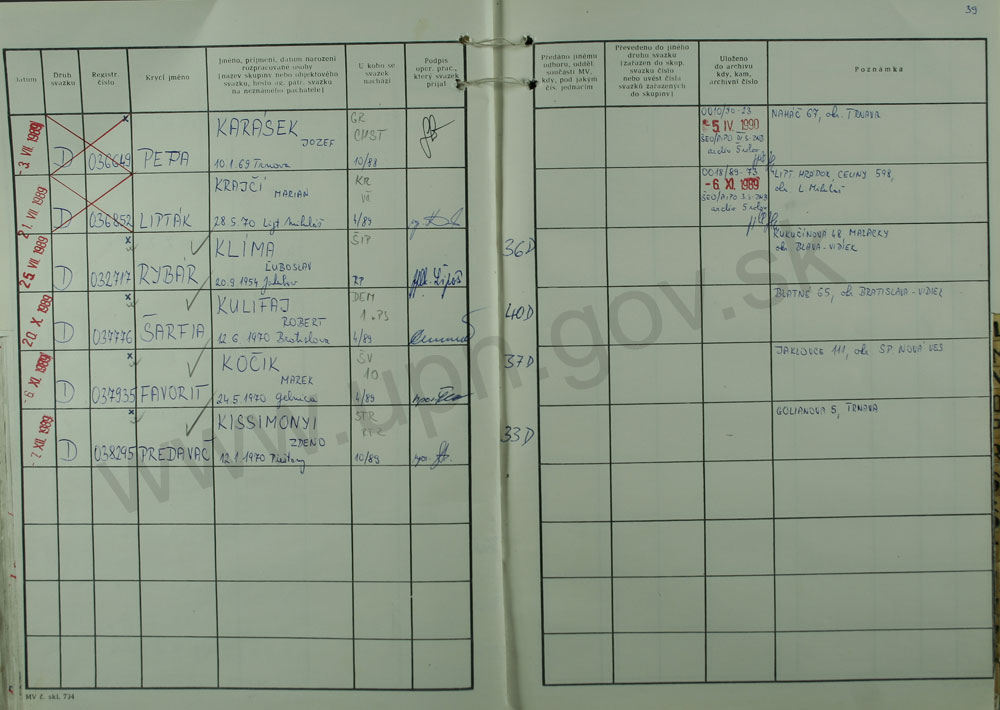 39
Datum
Druh svazku
Registr. číslo
Krycí jméno
Jméno, příjmení, datum narození
rozpracované osoby
(název skupiny nebo objektového
svazku, heslo ag. pátr. svazku
na neznámého pachatele)
U koho se
svazek
nachází
Podpis
oper. prac.,
který svazek
přijal
Předáno jinému
odboru, odděl.
součásti MV,
kdy, pod jakým
čís. jednacím
Převedeno do jiného
druhu svazku
(zařazen do skup.
svazku číslo
nebo uvést čísla
svazků zařazených
do skupiny)
Uloženo
do archivu
kdy, kam,
archivní číslo
Poznámka
-3. VII. 1989
D
036649
PEPA
KARÁSEK
JOZEF
10.1.69 Trnava
GR
10/88
0010/90-23
-5. IV. 1990
NAHÁČ 67, ok. TRNAVA
21. VII. 1989
D
036852
LIPTÁK
KRAJČÍ
MARIAN
28.5.70 Lipt. Mikuláš
KR
VII
4/89
0018/89-73
-6. XI. 1989
LIPT. HRÁDOK, CELINY 598,
ok. L. Mikuláš
25. VII. 1989
D
032717
RYBÁR
KLÍMA
ĽUBOSLAV
20.9.1954
36D
KUKUČÍNOVA 48, MALACKY
ok. BLAVA-VIDIEK
20. X. 1989
D
037776
ŠARFIA
KULIFAJ
ROBERT
12.6.1970 Bratislava
DEM
1.PS
4/89
40D
BLATNÉ 65, ok BRATISLAVA-VIDIEK
-6. XI. 1989
D
037935
FAVORIT
KOČIK
MAREK
24.5.1970 Gelnica
ŠV
10
4/89
37D
JAKLOVCE 111, ok SP. NOVÁ VES
-7. XII. 1989
D
038295
PREDAVAČ
KISSIMONYI
ZDENO
12.1.1970 Piešťany
STR
10/89
33D
GOLIANOVA 5, TRNAVA
MV č. skl. 734
www.upn.gov.sk